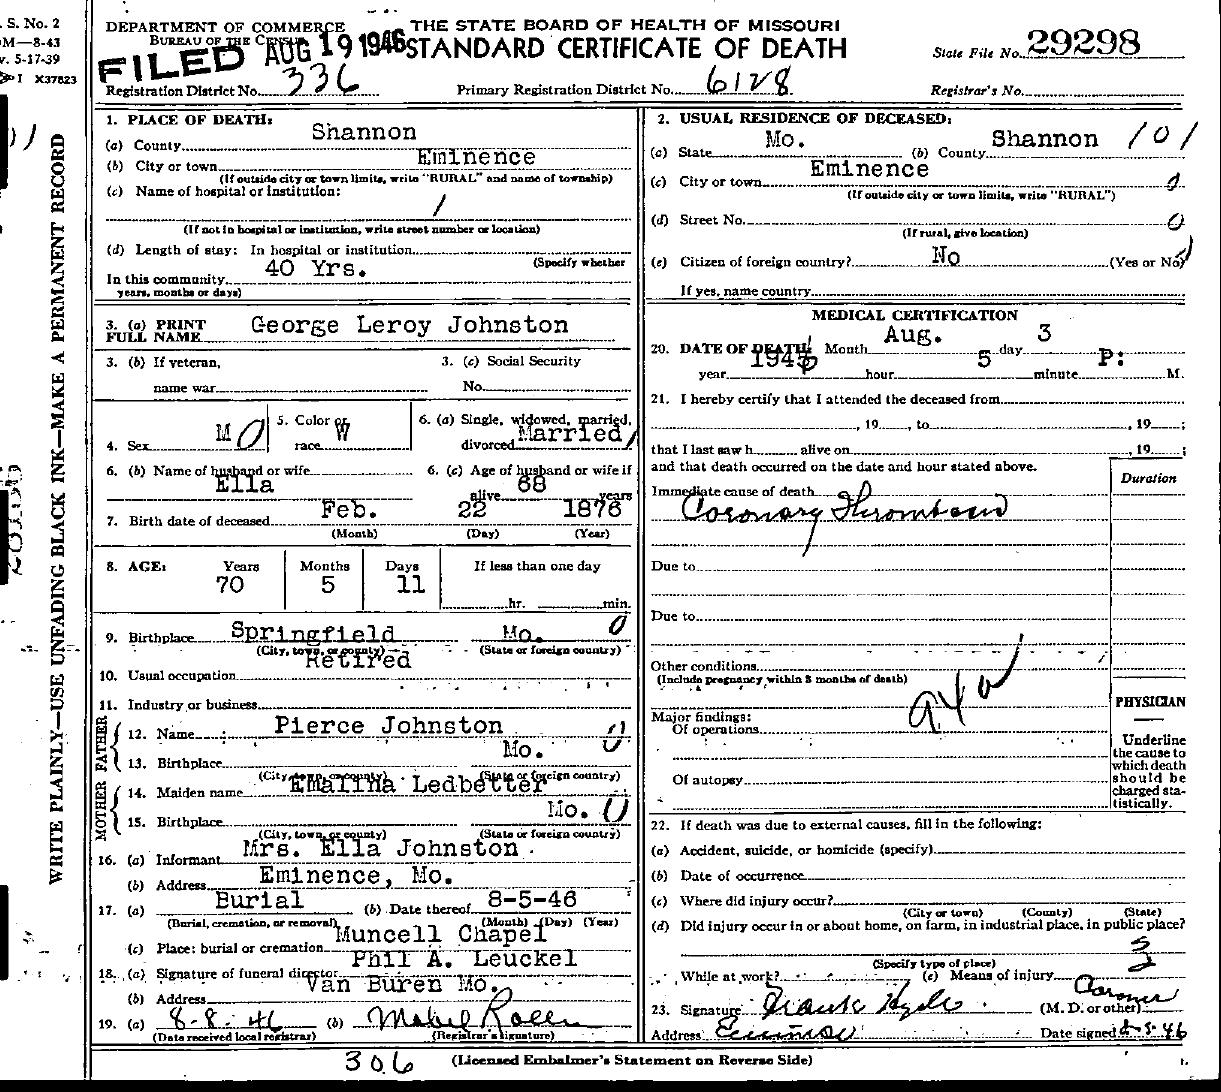 . S. No. 2
OM—8-43
v. 5-17-39
I X37823
WRITE PLAINLY—USE UNFADING BLACK INK—MAKE A PERMANENT RECORD
DEPARTMENT OF COMMERCE
BUREAU OF THE CENSUS
THE STATE BOARD OF HEALTH OF MISSOURI
STANDARD CERTIFICATE OF DEATH
FILED AUG 19 1946
State File No. 29298
Registration District No. 336
Primary Registration District No. 6128
Registrar's No.
1. PLACE OF DEATH:
(a) County Shannon
(b) City or town Eminence
(If outside city or town limits, write "RURAL" and name of township)
(c) Name of hospital or institution:
/
(If not in hospital or institution, write street number or location)
(d) Length of stay: In hospital or institution
(Specify whether
In this community 40 Yrs.
years, months or days)
3. (a) PRINT FULL NAME George Leroy Johnston
3. (b) If veteran,
name war
3. (c) Social Security
No.
4. Sex M 0
5. Color or race W
6. (a) Single, widowed, married,
divorced Married /
6. (b) Name of husband or wife
Ella
6. (c) Age of husband or wife if
alive 68 years
7. Birth date of deceased Feb. 22 1876
(Month) (Day) (Year)
8. AGE: Years Months Days If less than one day
70 5 11
hr. min.
9. Birthplace Springfield Mo. 0
(City, town, or county) (State or foreign country)
10. Usual occupation Retired
11. Industry or business
FATHER
12. Name Pierce Johnston
13. Birthplace Mo. 0
(City, town, or county) (State or foreign country)
MOTHER
14. Maiden name Emalina Ledbetter
15. Birthplace Mo. 0
(City, town, or county) (State or foreign country)
16. (a) Informant Mrs. Ella Johnston
(b) Address Eminence, Mo.
17. (a) Burial (b) Date thereof 8-5-46
(Burial, cremation, or removal) (Month) (Day) (Year)
(c) Place: burial or cremation Muncell Chapel
18. (a) Signature of funeral director Phil A. Leuckel
(b) Address Van Buren Mo.
19. (a) 8-8-46 (b) Mabel
(Date received local registrar) (Registrar's signature)
2. USUAL RESIDENCE OF DECEASED:
(a) State Mo. (b) County Shannon 101
(c) City or town Eminence 0
(If outside city or town limits, write "RURAL")
(d) Street No. 0
(If rural, give location)
(e) Citizen of foreign country? No (Yes or No)
If yes, name country
MEDICAL CERTIFICATION
20. DATE OF DEATH: Month Aug. day 3
year 1946 hour 5 minute P: M.
21. I hereby certify that I attended the deceased from
, 19 , to , 19 ;
that I last saw h alive on , 19 ;
and that death occurred on the date and hour stated above.
Duration
Immediate cause of death
Coronary Thrombosis
Due to
Due to
Other conditions
(Include pregnancy within 3 months of death)
94a
Major findings:
Of operations
Of autopsy
PHYSICIAN
Underline
the cause to
which death
should be
charged sta-
tistically.
22. If death was due to external causes, fill in the following:
(a) Accident, suicide, or homicide (specify)
(b) Date of occurrence
(c) Where did injury occur?
(City or town) (County) (State)
(d) Did injury occur in or about home, on farm, in industrial place, in public place?
(Specify type of place)
While at work? (e) Means of injury
Coroner
23. Signature Frank Hyde (M. D. or other)
Address Eminence Date signed 8-5-46
306 (Licensed Embalmer's Statement on Reverse Side)